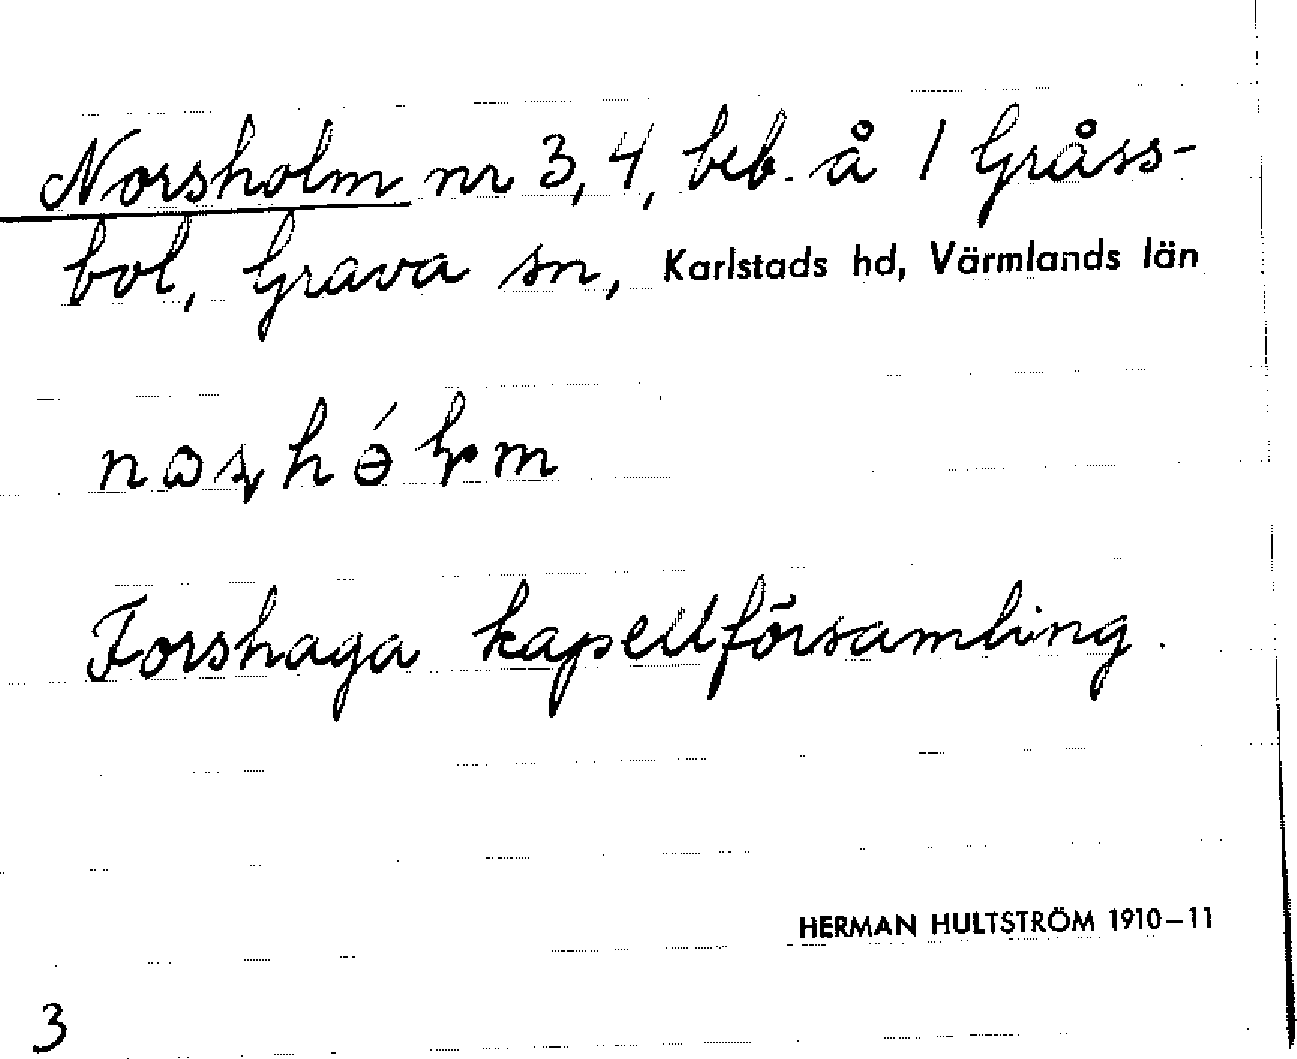 Norsholm nr 3, 4, beb. å 1 Gråss-
bol, Grava sn, Karlstads hd, Värmlands län
Forshaga kapellförsamling.
HERMAN HULTSTRÖM 1910–11
3